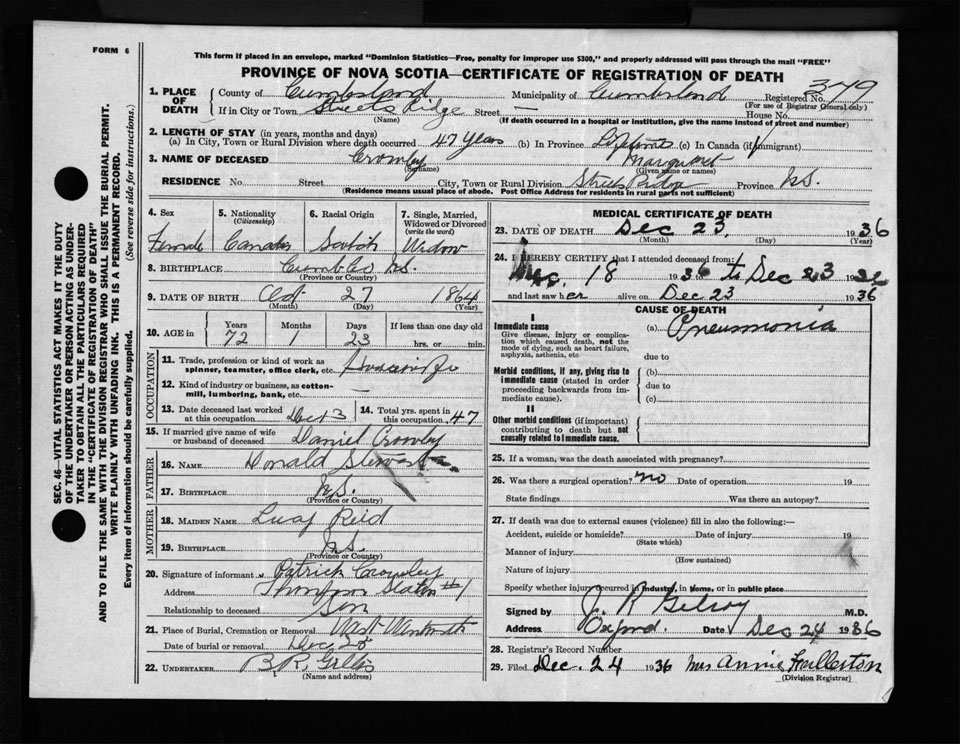 FORM 6
This form if placed in an envelope, marked "Dominion Statistics—Free, penalty for improper use $300," and properly addressed will pass through the mail "FREE"
PROVINCE OF NOVA SCOTIA—CERTIFICATE OF REGISTRATION OF DEATH
1. PLACE OF DEATH
County of Cumberland Municipality of Cumberland Registered No. 379
(For use of Registrar General only)
If in City or Town Streets Ridge Street — House No.
(Name) (If death occurred in a hospital or institution, give the name instead of street and number)
2. LENGTH OF STAY (in years, months and days)
(a) In City, Town or Rural Division where death occurred 47 years (b) In Province Lifetime (c) In Canada (if immigrant)
3. NAME OF DECEASED Crowley Margaret
(Surname) (Given name or names)
RESIDENCE No. Street City, Town or Rural Division Streets Ridge Province N.S.
(Residence means usual place of abode. Post Office Address for residents in rural parts not sufficient)
4. Sex 5. Nationality 6. Racial Origin 7. Single, Married, Widowed or Divorced
(Citizenship) (write the word)
Female Canadian Scotch Widow
8. BIRTHPLACE Cumb Co N.S.
(Province or Country)
9. DATE OF BIRTH Oct 27 1864
(Month) (Day) (Year)
10. AGE in Years Months Days If less than one day old
72 1 23 hrs. or min.
OCCUPATION
11. Trade, profession or kind of work as spinner, teamster, office clerk, etc. Housewife
12. Kind of industry or business, as cotton-mill, lumbering, bank, etc. —
13. Date deceased last worked at this occupation Dec 3
14. Total yrs. spent in this occupation 47
15. If married give name of wife or husband of deceased Daniel Crowley
FATHER
16. NAME Donald Stewart
17. BIRTHPLACE N.S.
(Province or Country)
MOTHER
18. MAIDEN NAME Lucy Reid
19. BIRTHPLACE N.S.
(Province or Country)
20. Signature of informant Patrick Crowley
Address Thompson Station #1
Relationship to deceased Son
21. Place of Burial, Cremation or Removal West Wentworth
Date of burial or removal Dec 25
22. UNDERTAKER B. R. Gillis
(Name and address)
MEDICAL CERTIFICATE OF DEATH
23. DATE OF DEATH Dec 23, 1936
(Month) (Day) (Year)
24. I HEREBY CERTIFY that I attended deceased from:
Dec. 18 1936 to Dec 23 1936
and last saw her alive on Dec 23 1936
CAUSE OF DEATH
I
Immediate cause (a) Pneumonia
Give disease, injury or complication which caused death, not the mode of dying, such as heart failure, asphyxia, asthenia, etc
due to
Morbid conditions, if any, giving rise to immediate cause (stated in order proceeding backwards from immediate cause).
(b)
due to
(c)
II
Other morbid conditions (if important) contributing to death but not causally related to immediate cause.
25. If a woman, was the death associated with pregnancy?
26. Was there a surgical operation? no Date of operation 19
State findings Was there an autopsy?
27. If death was due to external causes (violence) fill in also the following:—
Accident, suicide or homicide? Date of injury 19
(State which)
Manner of injury
(How sustained)
Nature of injury
Specify whether injury occurred in industry, in home, or in public place
Signed by J. R. Gilroy M.D.
Address Oxford. Date Dec 24 1936
28. Registrar's Record Number
29. Filed Dec. 24 1936 Mrs Annie Fullerton
(Division Registrar)
SEC. 46—VITAL STATISTICS ACT MAKES IT THE DUTY
OF THE UNDERTAKER OR PERSON ACTING AS UNDER-
TAKER TO OBTAIN ALL THE PARTICULARS REQUIRED
IN THE "CERTIFICATE OF REGISTRATION OF DEATH"
AND TO FILE THE SAME WITH THE DIVISION REGISTRAR WHO SHALL ISSUE THE BURIAL PERMIT.
WRITE PLAINLY WITH UNFADING INK. THIS IS A PERMANENT RECORD.
Every item of information should be carefully supplied. (See reverse side for instructions.)